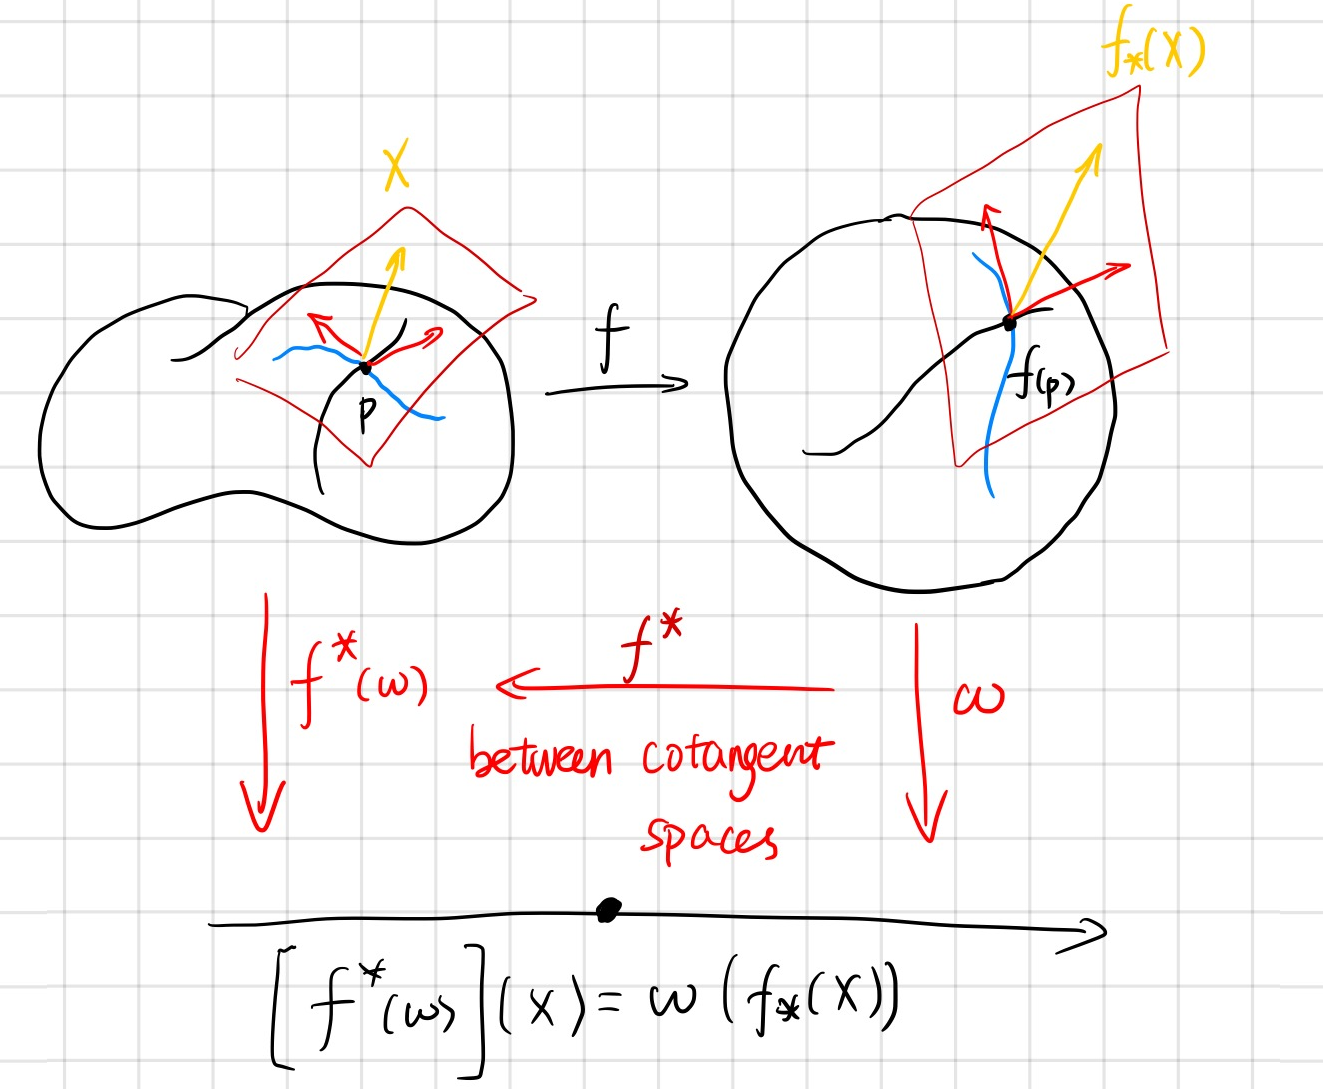 f_*(X)
X
f
p
f(p)
f^*(ω)
f^*
ω
between cotangent
spaces
[f^*(ω)](X) = ω(f_*(X))